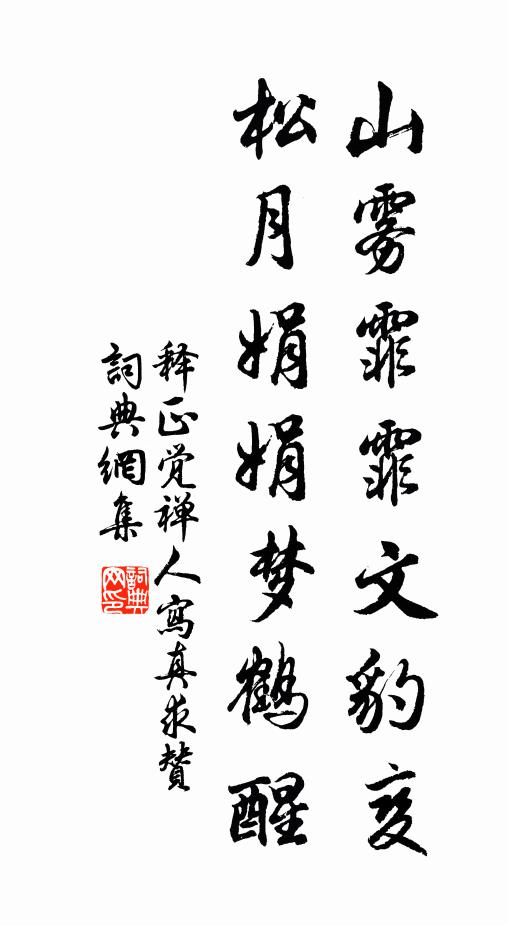 山雾霏霏文豹变
松月娟娟梦鹤醒
释正觉禅人寫真求賛
詞典網集
詞典网印